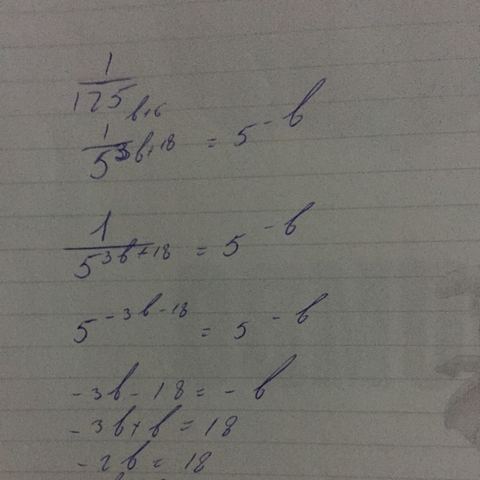 1
125 b+6
1
5^3b+18 = 5^-b
1
5^3b+18 = 5^-b
5^-3b-18 = 5^-b
-3b-18=-b
-3b+b=18
-2b=18